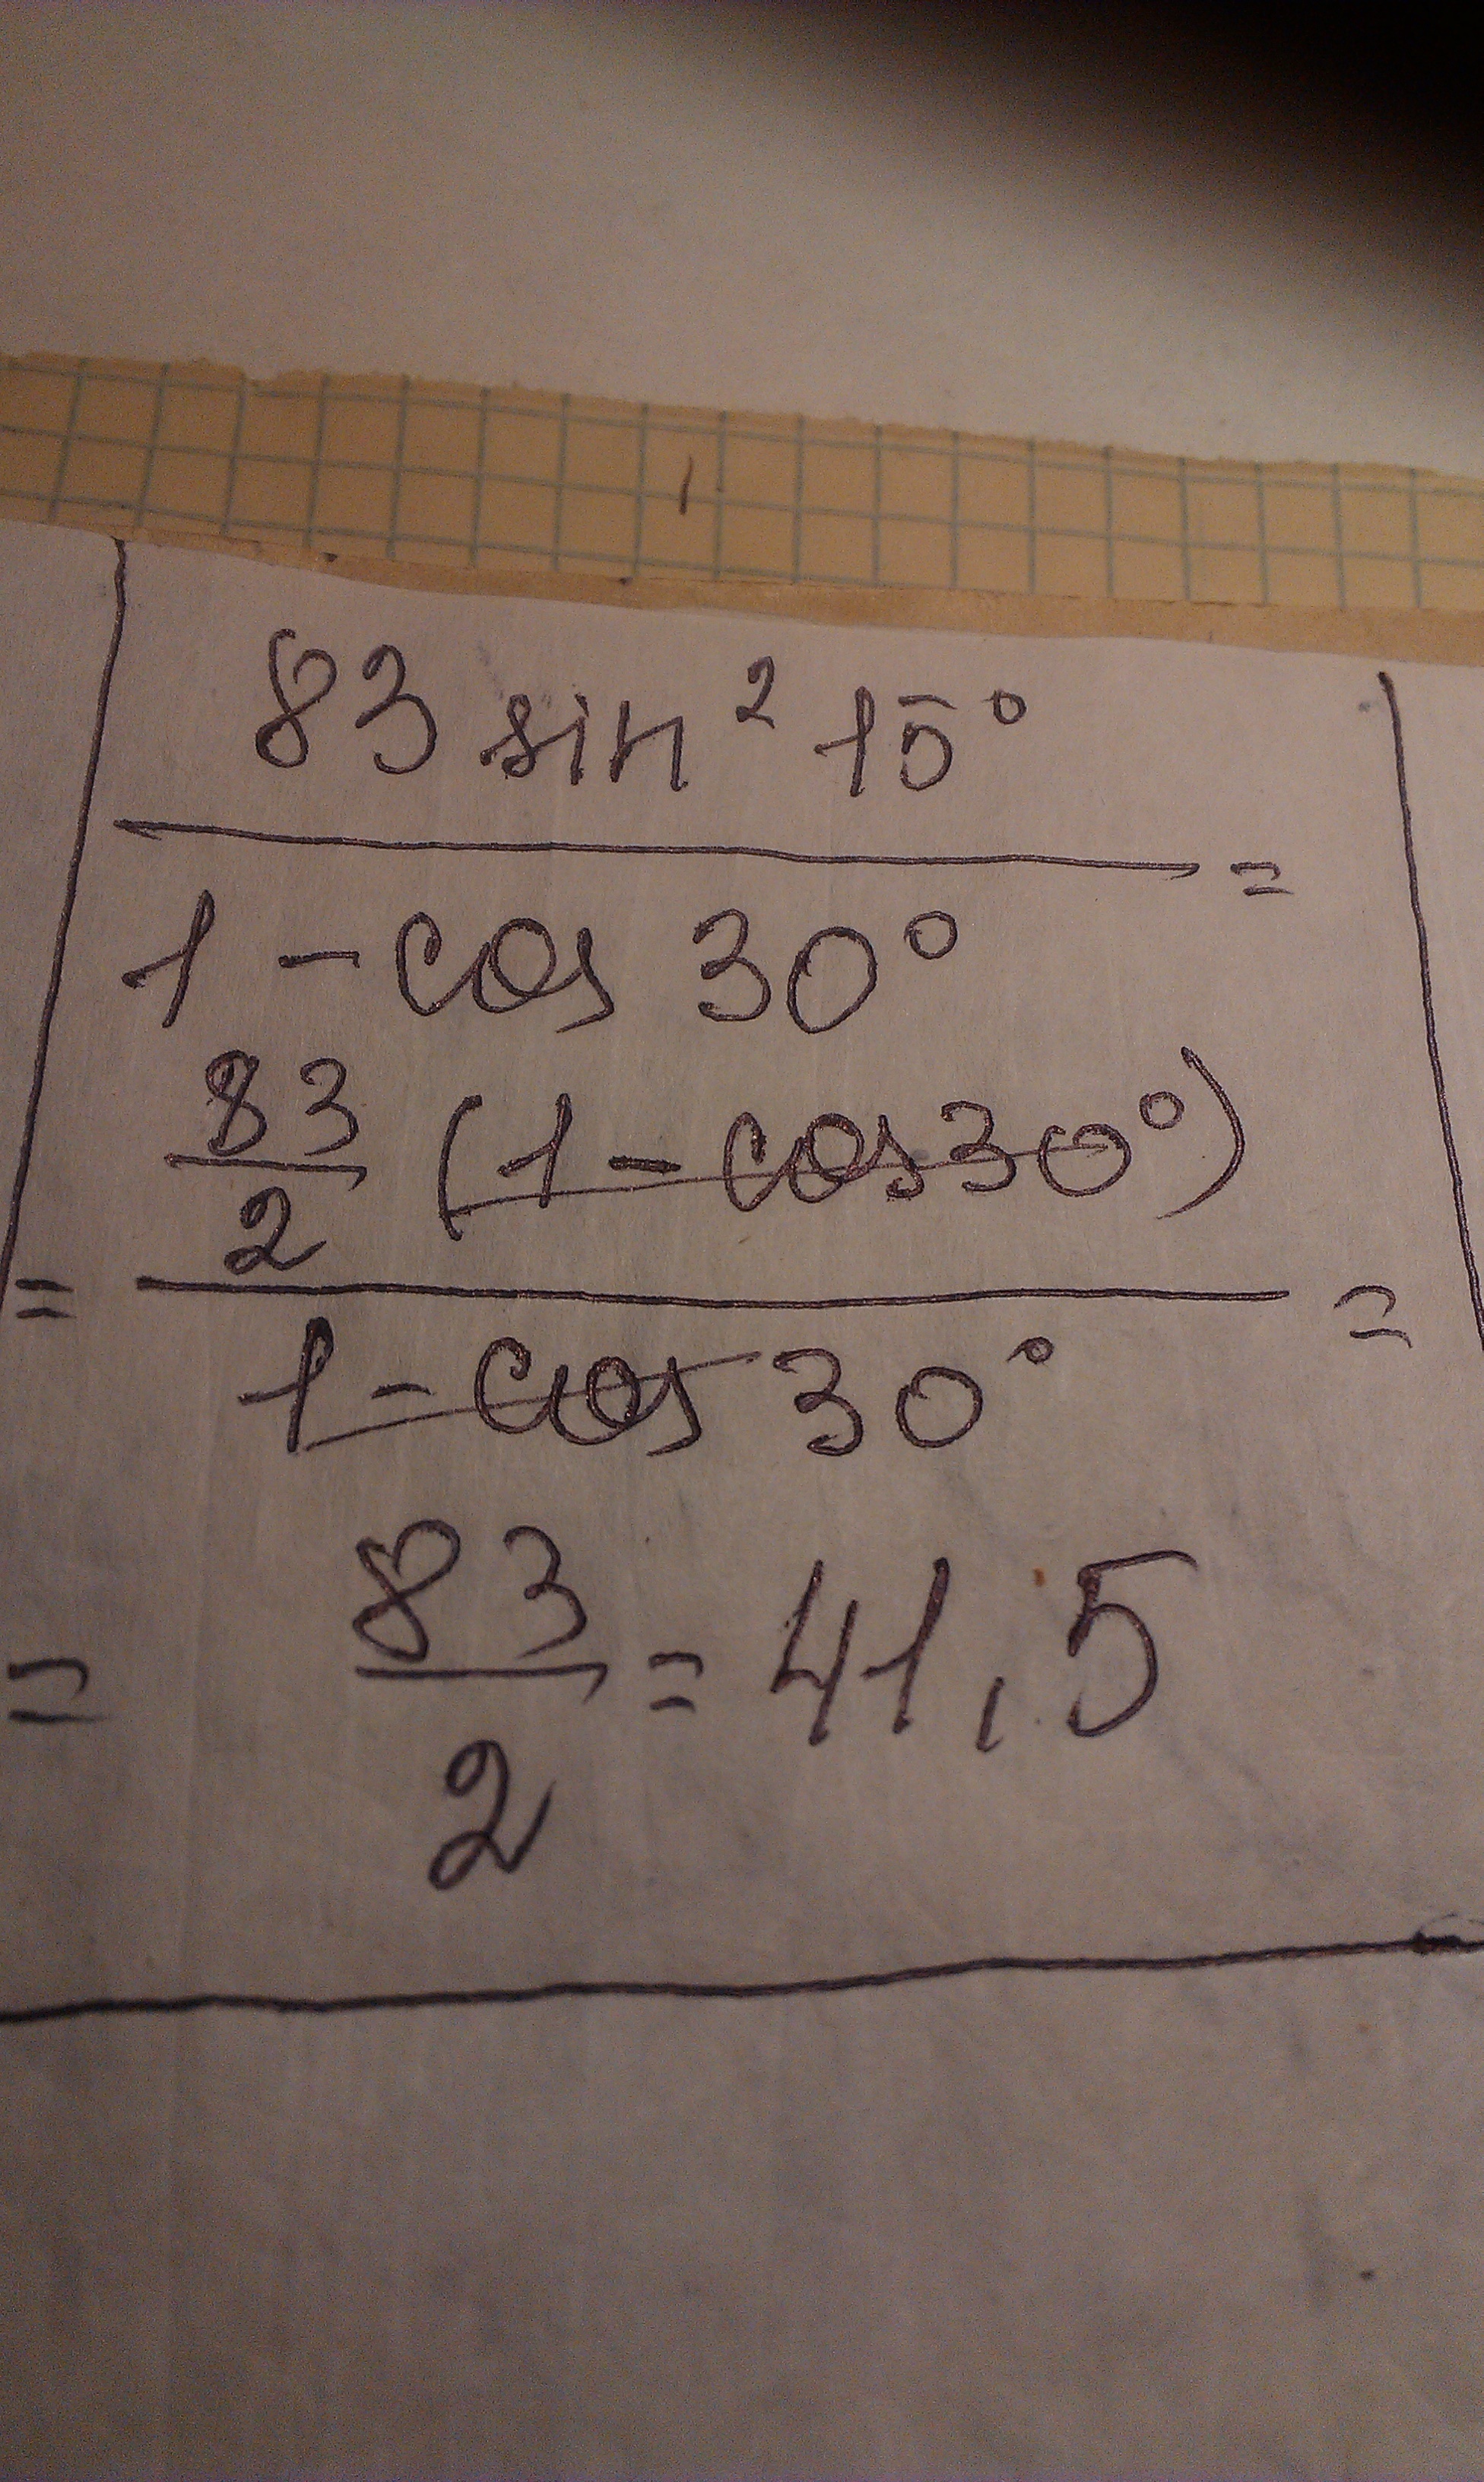 83 sin² 15°
=
1 - cos 30°
83/2 (1 - cos 30°)
= =
1 - cos 30°
= 83/2 = 41,5